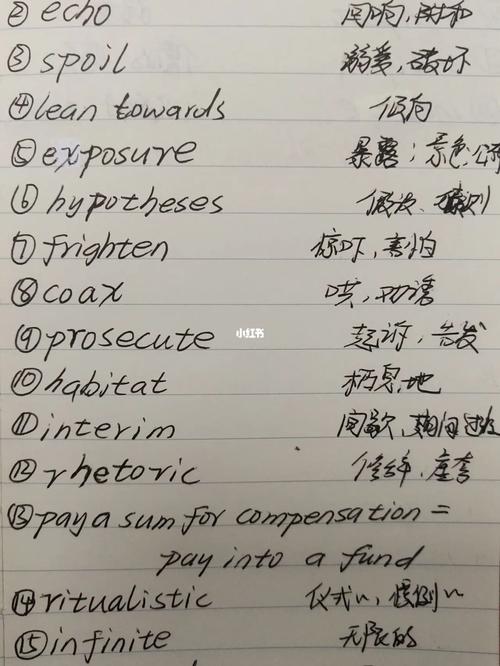 ② echo 回响,附和
③ spoil 溺爱,破坏
④ lean towards 倾向
⑤ exposure 暴露;景色
⑥ hypotheses 假设、猜测
⑦ frighten 惊吓,害怕
⑧ coax 哄,劝诱
⑨ prosecute 起诉,告发
小红书
⑩ habitat 栖息地
⑪ interim 间歇,期间
⑫ rhetoric 修辞,
⑬ pay a sum for compensation =
pay into a fund
⑭ ritualistic 仪式~,惯例~
⑮ infinite 无限的